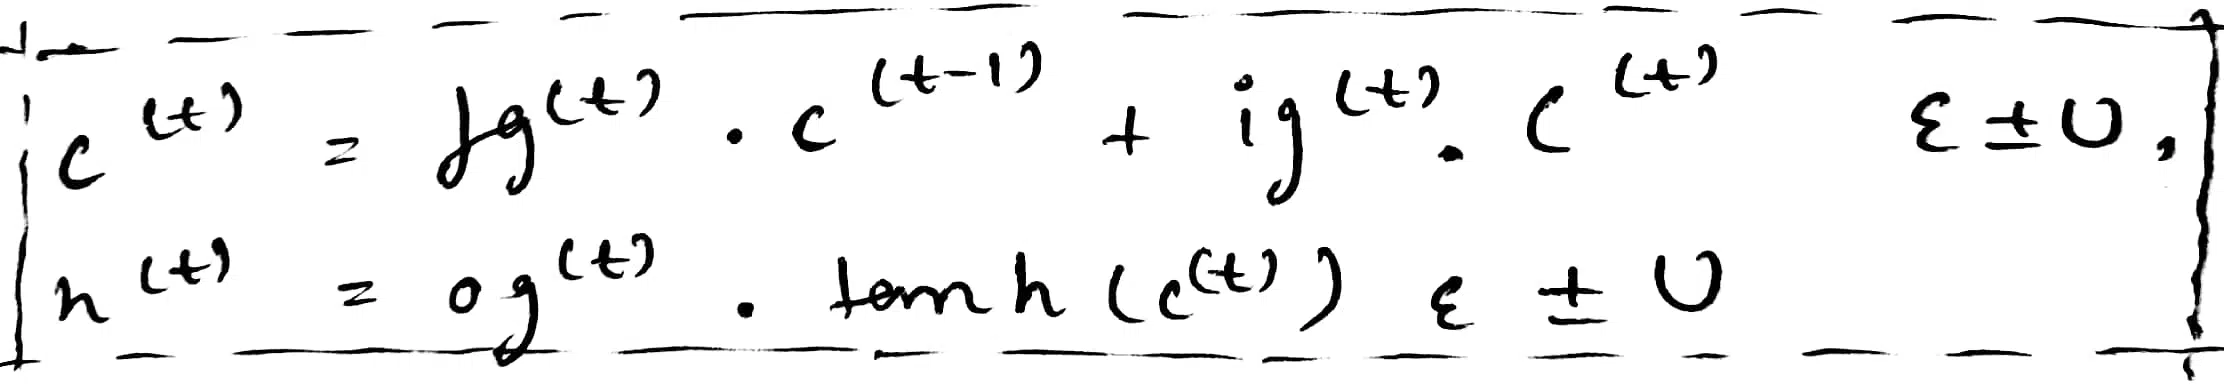 c^(t) = fg^(t) . c^(t-1) + ig^(t) . C^(t) ε ± U,
h^(t) = og^(t) . tanh (c^(t)) ε ± U